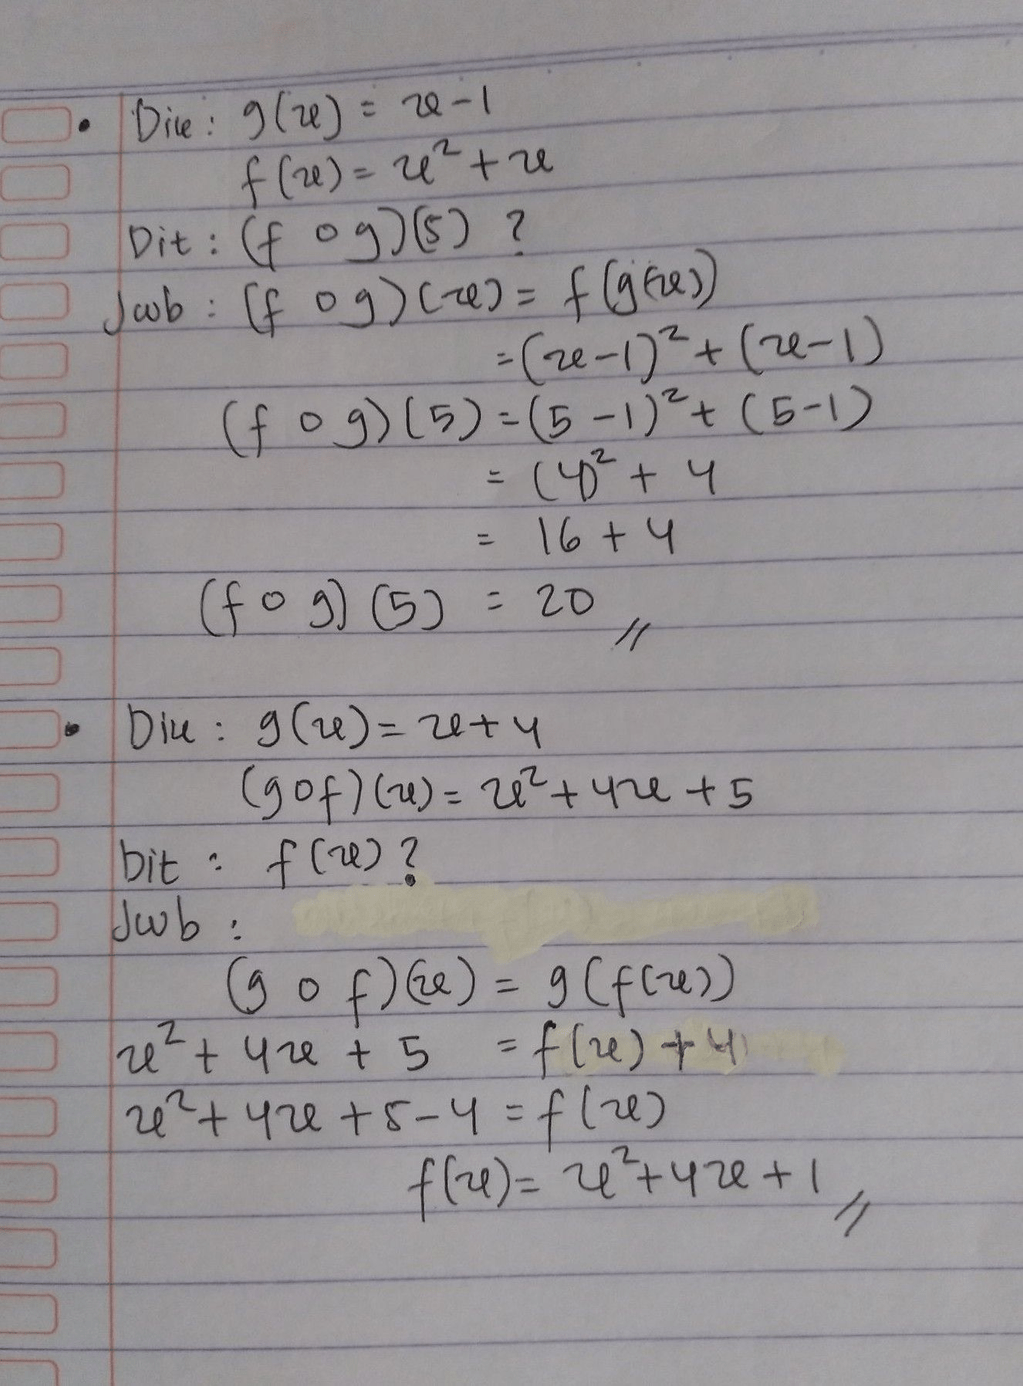 • Dik : g(x) = x - 1
f(x) = x² + x
Dit : (f o g)(5) ?
Jwb : (f o g)(x) = f(g(x))
= (x-1)² + (x-1)
(f o g)(5) = (5 - 1)² + (5-1)
= (4)² + 4
= 16 + 4
(f o g)(5) = 20 //
• Dik : g(x) = x + 4
(g o f)(x) = x² + 4x + 5
Dit : f(x) ?
Jwb :
(g o f)(x) = g(f(x))
x² + 4x + 5 = f(x) + 4
x² + 4x + 5 - 4 = f(x)
f(x) = x² + 4x + 1 //